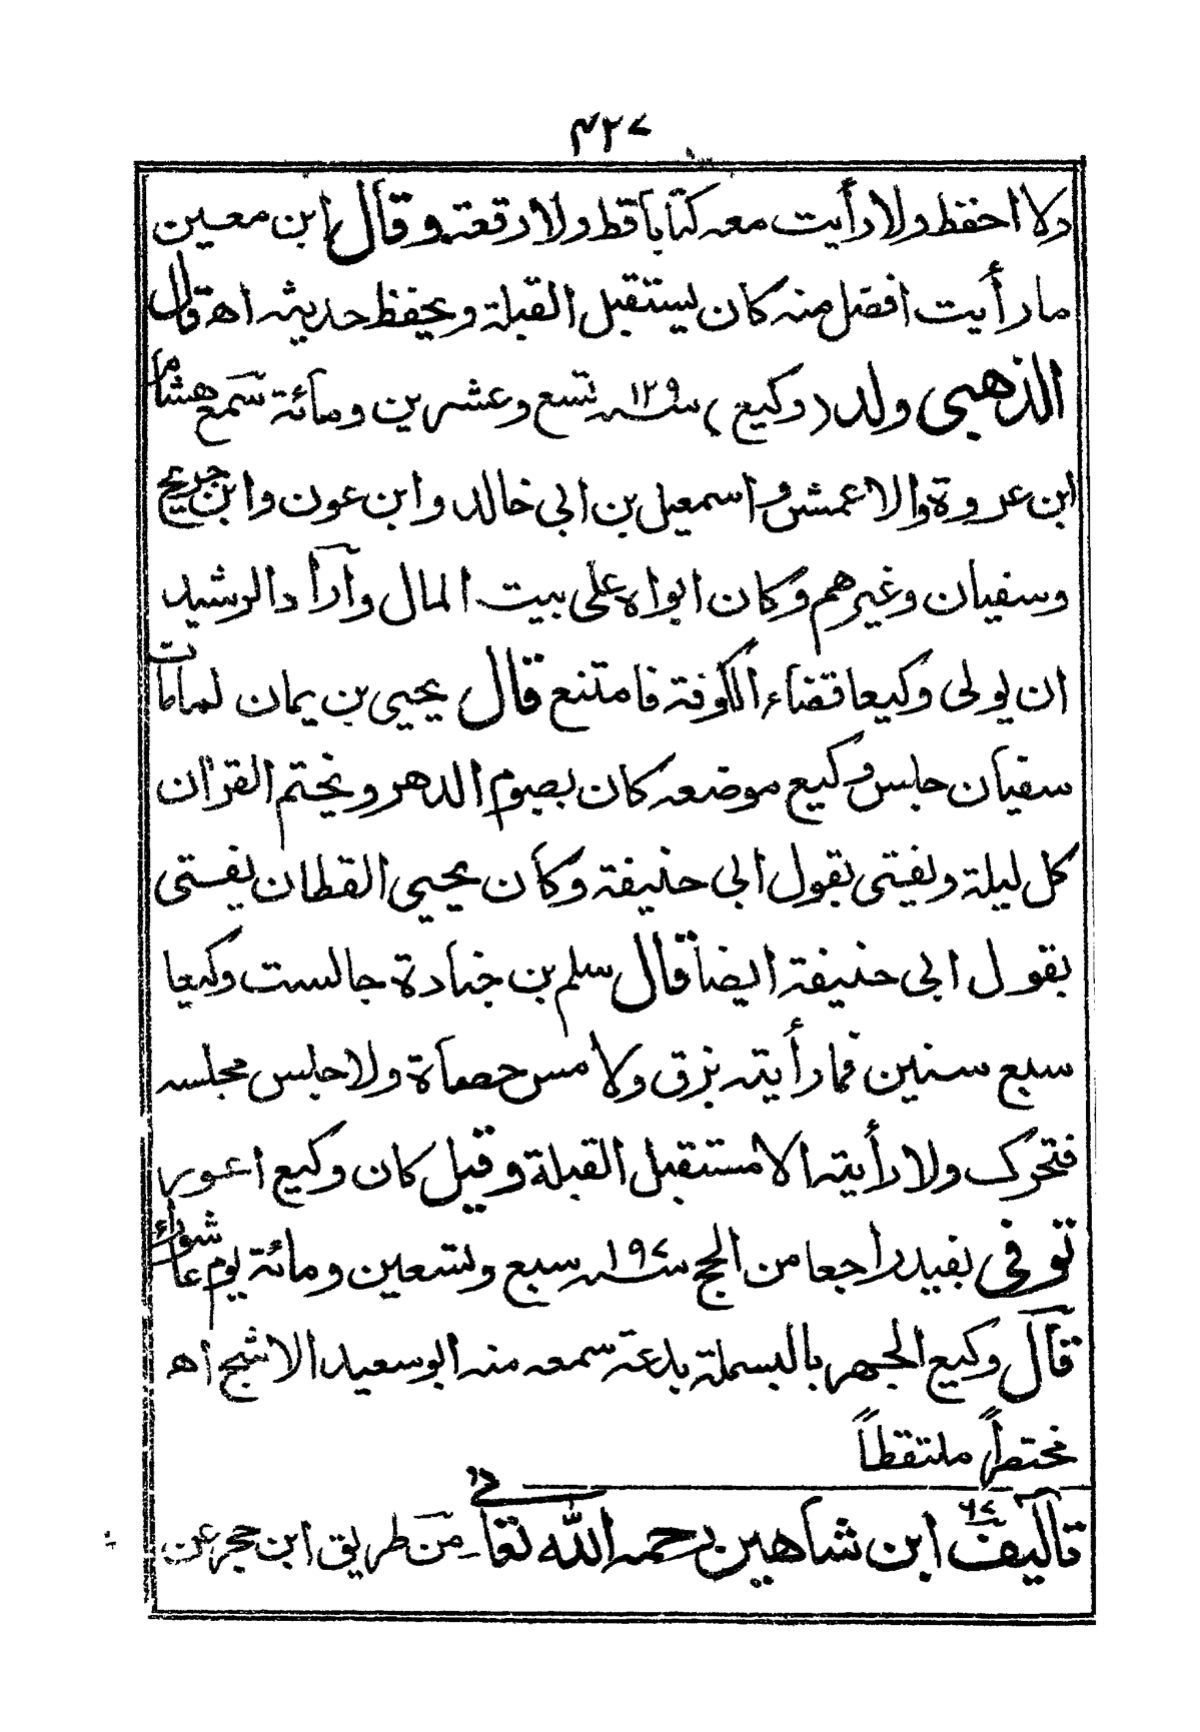 ٤٢٧
ولا احفظ ولا رأيت معه كتابا قط ولا رقعة وقال ابن معين
ما رأيت افضل منه كان يستقبل القبلة ويحفظ حديثه اه قال
الذهبى ولد (وكيع) سنة ١٢٩ تسع وعشرين ومائة سمع هشام
ابن عروة والاعمش واسمعيل بن ابى خالد وابن عون وابن جريج
وسفيان وغيرهم وكان ابواه على بيت المال وآراد الرشيد
ان يولى وكيعا قضاء الكوفة فامتنع قال يحيى بن يمان لمامات
سفيان جلس وكيع موضعه كان يصوم الدهر ويختم القرآن
كل ليلة ويفتى بقول ابى حنيفة وكان يحيى القطان يفتى
بقول ابى حنيفة ايضا قال سلم بن جنادة جالست وكيعا
سبع سنين فما رأيته بزق ولا مس حصاة ولا جلس مجلسه
فتحرك ولا رأيته الا مستقبل القبلة وقيل كان وكيع اعور
توفى بفيد راجعا من الحج سنة ١٩٧ سبع وتسعين ومائة يوم عاشوراء
قال وكيع الجهر بالبسملة بدعة سمعه منه ابو سعيد الاشج اه
مختصراً ملتقطاً
تآليف ابن شاهين رحمه الله تعا من طريق ابن حجر عن